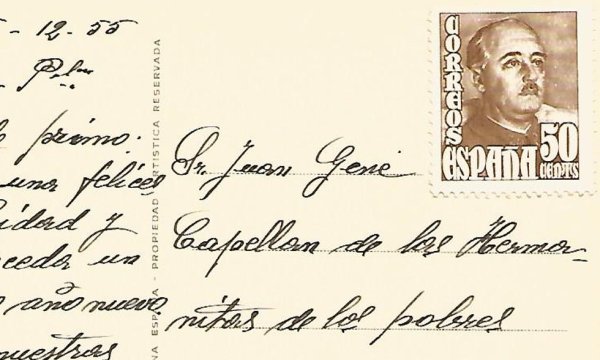 -12-55
primo:
una felices
y
un
año nuevo
nuestras
ARTISTICA RESERVADA
ESPAÑA - PROPIEDAD
Sr. Juan Gené
Capellan de las Herma-
nitas de los pobres
CORREOS
ESPAÑA
50
CENTS